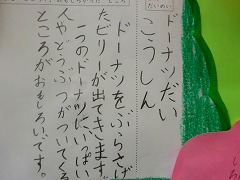 だいめい
ドーナツだい
こうしん
ドーナツをぶらさげ
たビリーが出てきます。
一つのドーナツにいっぱい
人やどうぶつがついてくる
ところがおもしろいです。